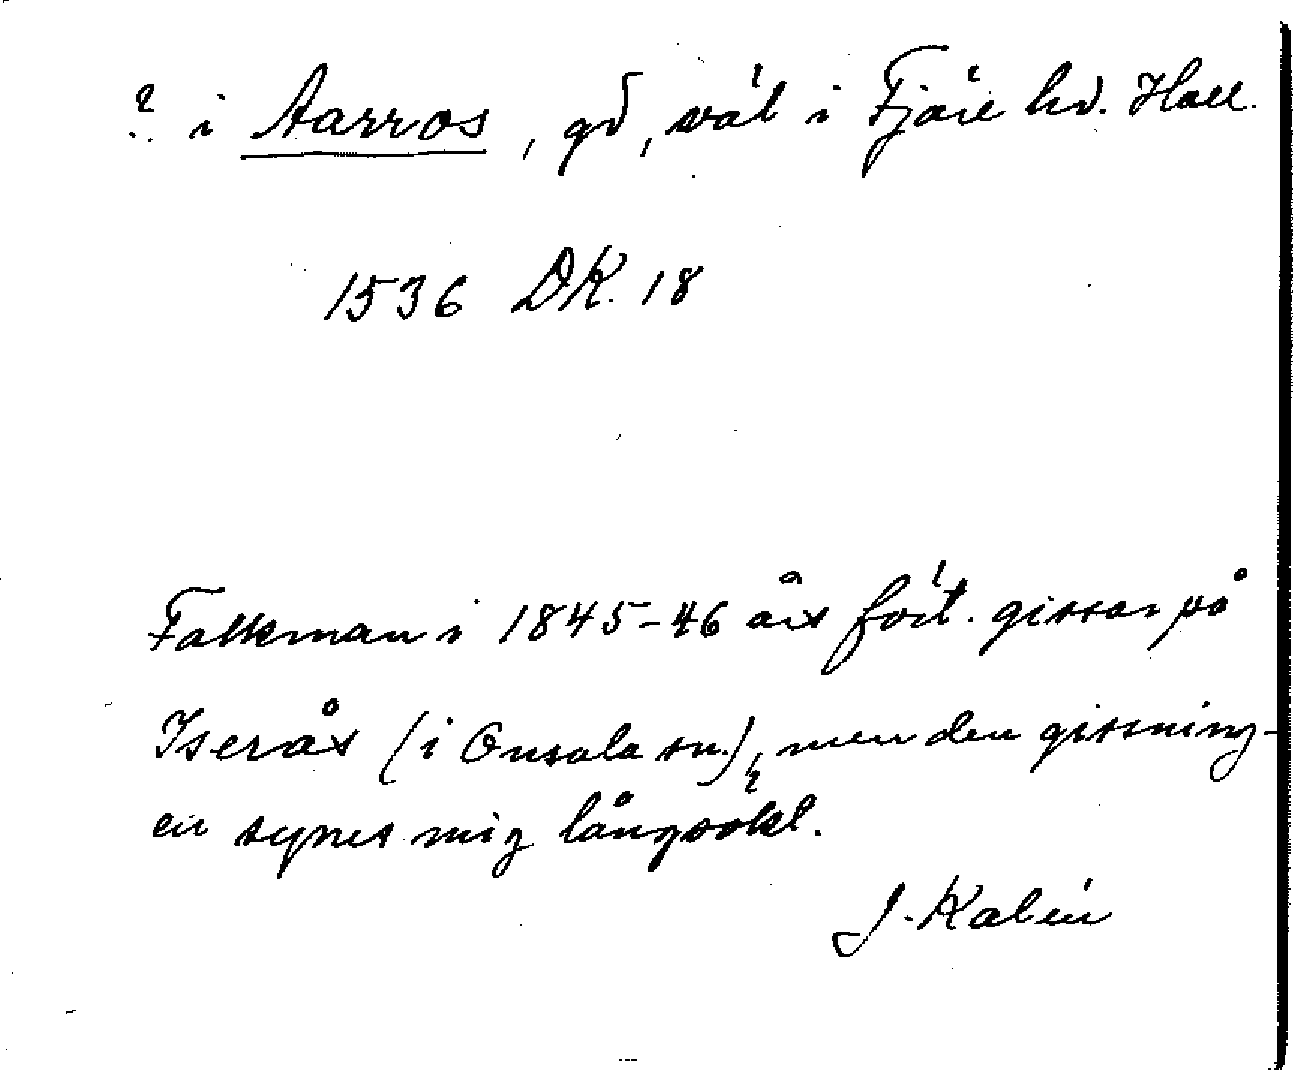 ? i Aarros, gd, väl i Fjäre hd. Hall.
1536 DK. 18
Falkman i 1845-46 års fört. gissar på
Iserås (i Onsala sn.), men den gissning-
en synes mig långsökt.
J. Kalén